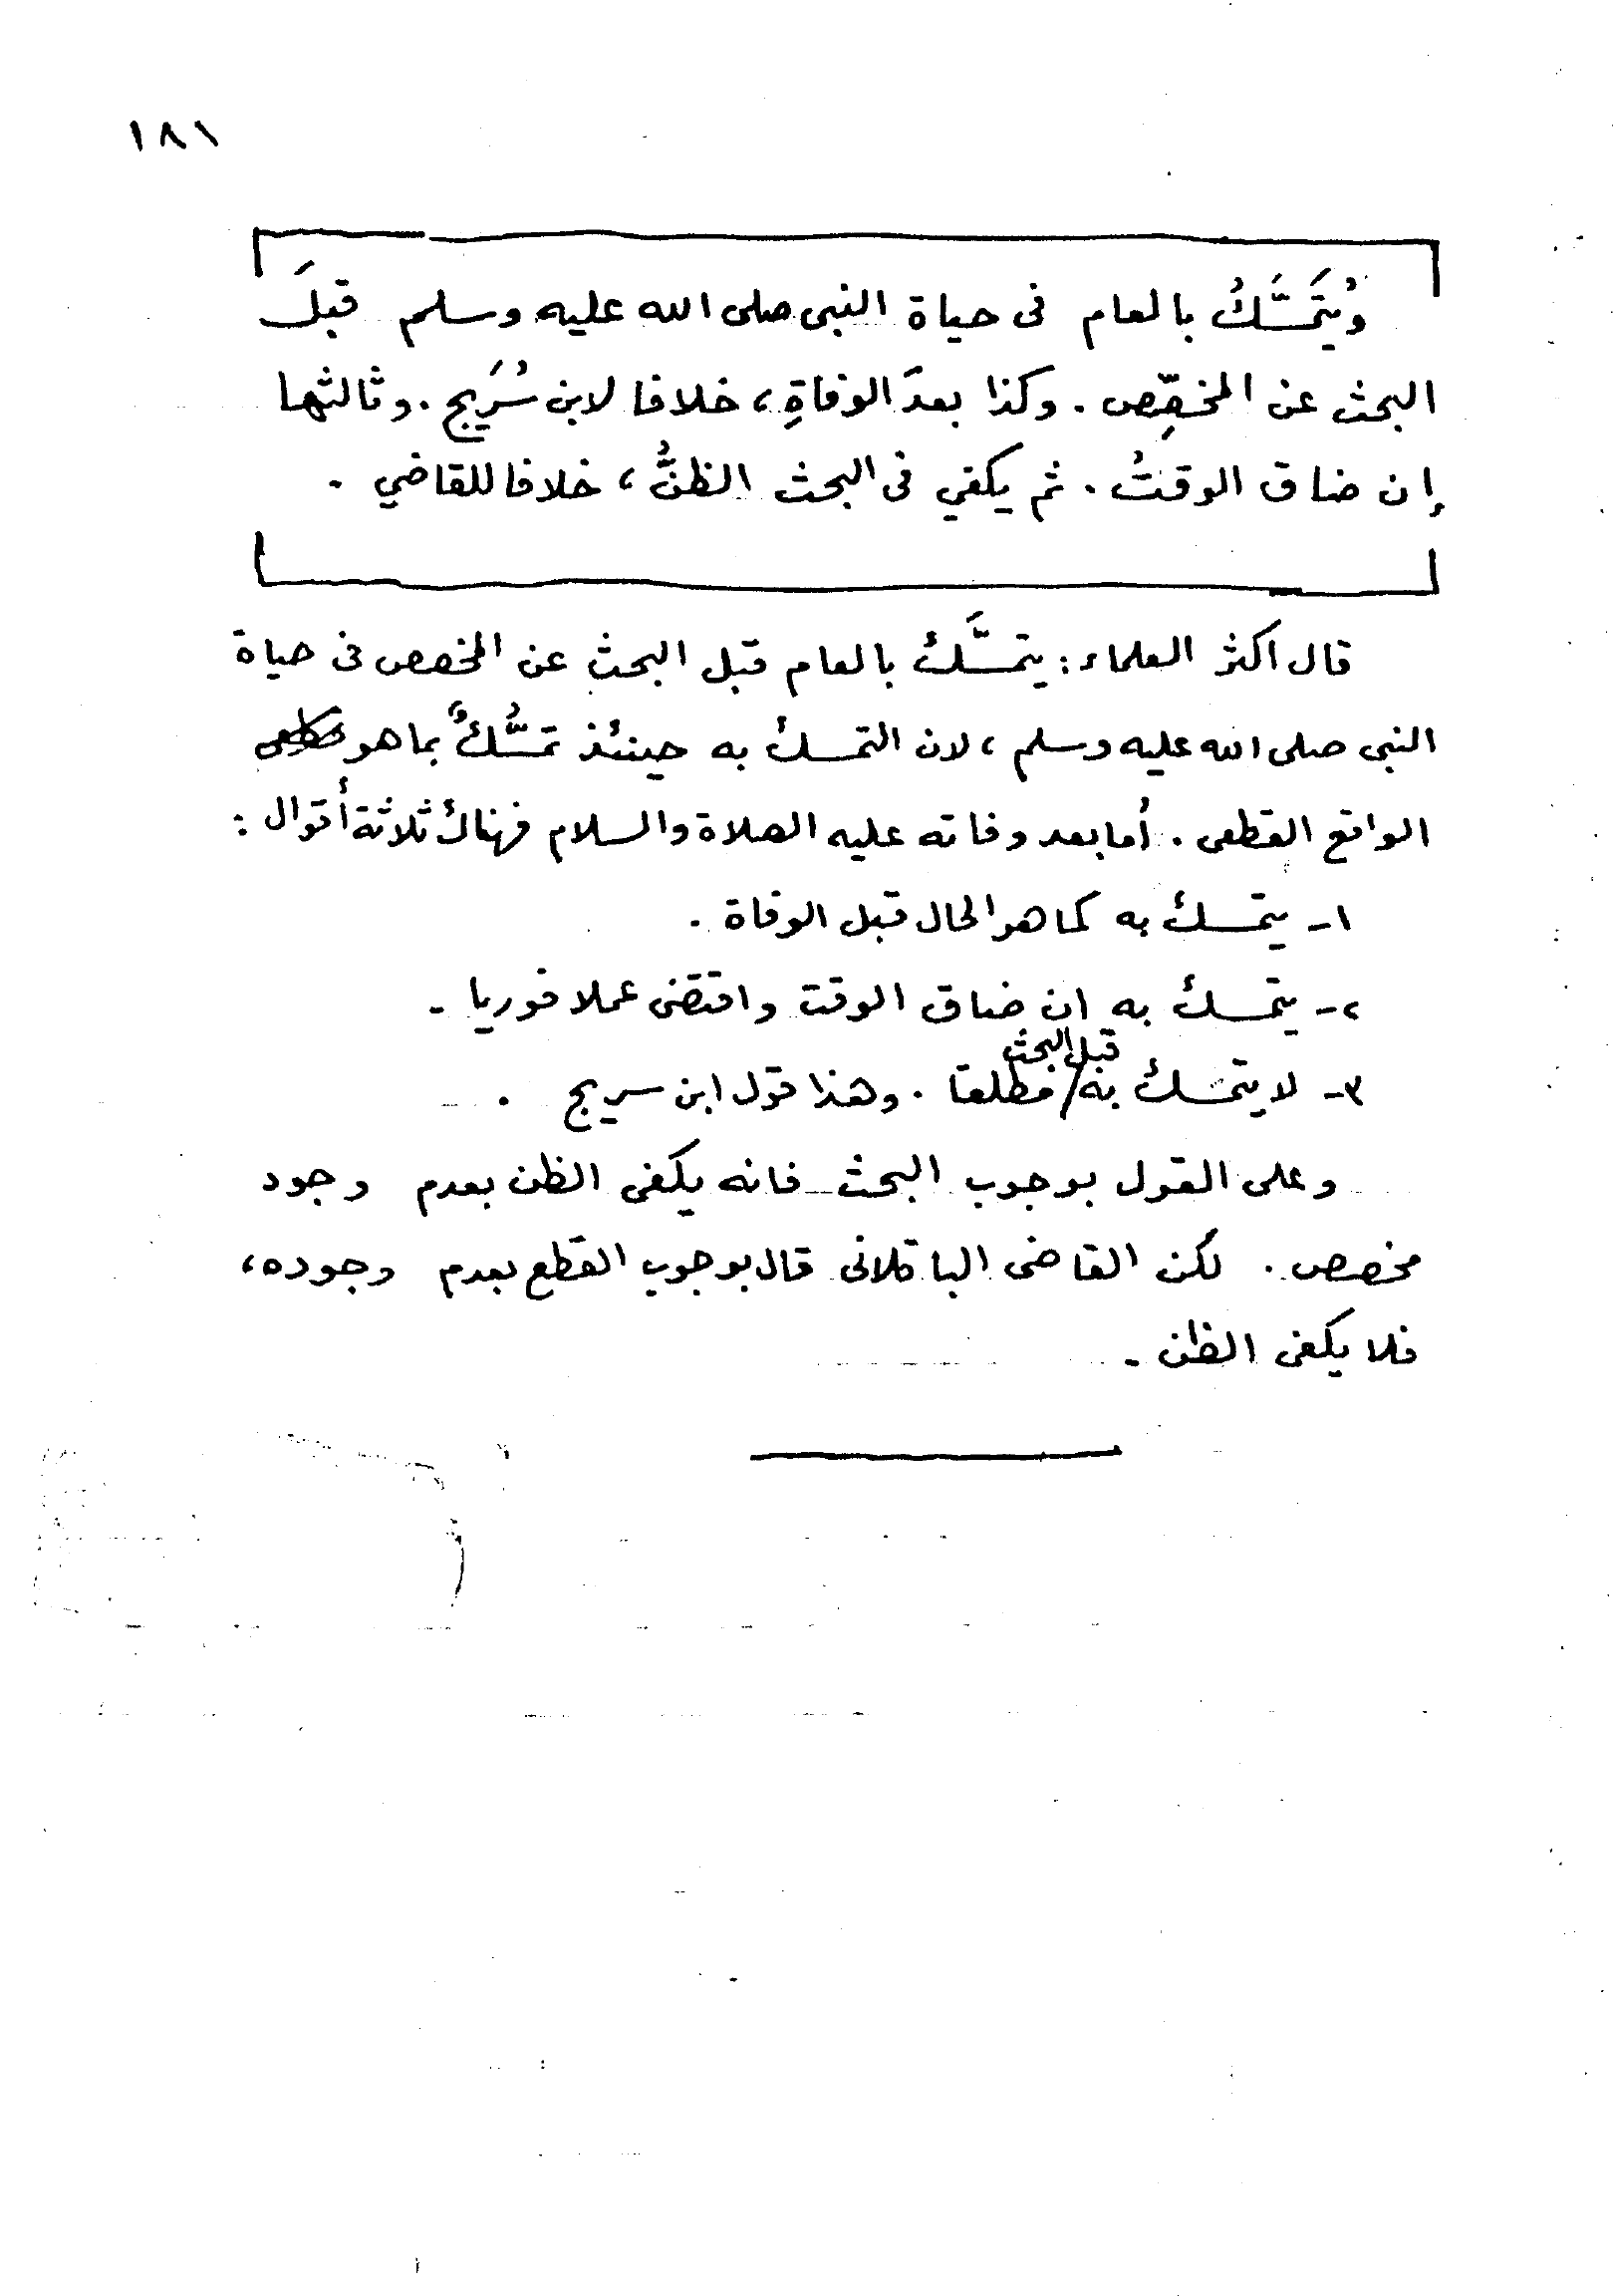 ١٨١
ويُتَمَسَّكُ بالعام فى حياة النبى صلى الله عليه وسلم قبلَ
البحث عن المخصِّص . وكذا بعدَ الوفاةِ ، خلافا لابن سُرَيج . وثالثها
إن ضاق الوقتُ . ثم يكفي فى البحث الظنُّ ، خلافا للقاضي .
قال اكثر العلماء : يتمسَّك بالعام قبل البحث عن المخصص فى حياة
النبى صلى الله عليه وسلم ، لان التمسك به حينئذ تمسُّكٌ بما هو
الواقع القطعى . أما بعد وفاته عليه الصلاة والسلام فهناك ثلاثة أقوال :
١- يتمسك به كما هو الحال قبل الوفاة .
٢- يتمسك به ان ضاق الوقت واقتضى عملا فوريا .
٣- لا يتمسك به قبل البحث مطلقا . وهذا قول ابن سريج .
وعلى القول بوجوب البحث فانه يكفى الظن بعدم وجود
مخصص . لكن القاضى الباقلانى قال بوجوب القطع بعدم وجوده ،
فلا يكفى الظن .